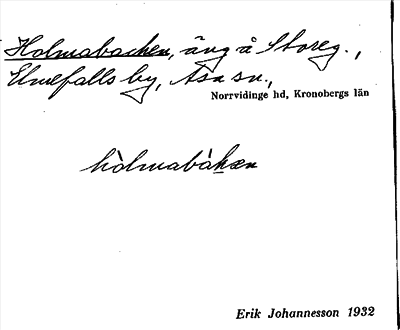 Holmabacken, äng å Storeg.,
Elmefalls by, Asa sn.,
Norrvidinge hd, Kronobergs län
hòlmabàkæn
Erik Johannesson 1932